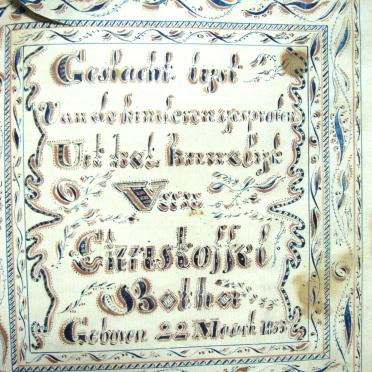 Geslacht lyst
Van de kinderen gesproten
Uit het huwelyk
Van
Christoffel
Botha
Geboren 22 Maart